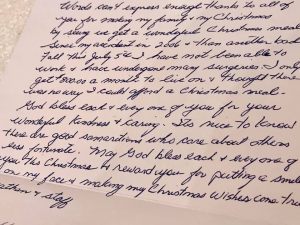 Words can't express enough thanks to all of
you for making my family & my Christmas
by giving us a wonderful Christmas meal
Since my accident in 2006 & then another bad
fall this July 5th I have not been able to
work & have undergone many surgeries I only
get a month to live on & thought there
was no way I could afford a Christmas meal-
God bless each & every one of you for your
Wonderful Kindness & Caring. Its nice to know
there are good samaritans who care about others
less fortunate. May God bless each & every one of
you this Christmas & reward you for putting a smile
on my face & making my Christmas Wishes come true
& staff